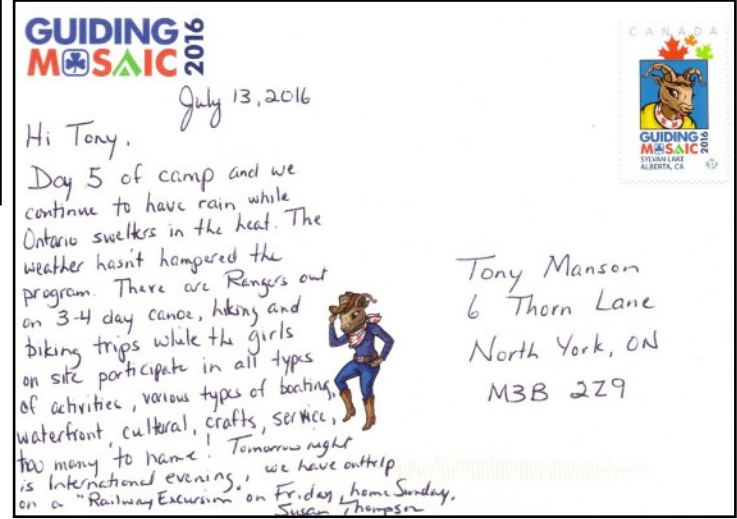 GUIDING
MOSAIC 2016
July 13, 2016
Hi Tony,
Day 5 of camp and we
continue to have rain while
Ontario swelters in the heat. The
weather hasn't hampered the
program. There are Rangers out
on 3-4 day canoe, hiking and
biking trips while the girls
on site participate in all types
of activities, various types of boating,
waterfront, cultural, crafts, service,
too many to name! Tomorrow night
is International evening, we have
on a "Railway Excursion" on Friday, home Sunday.
Susan Thompson
CANADA
GUIDING
MOSAIC 2016
SYLVAN LAKE
ALBERTA, CA
P
Tony Manson
6 Thorn Lane
North York, ON
M3B 2Z9